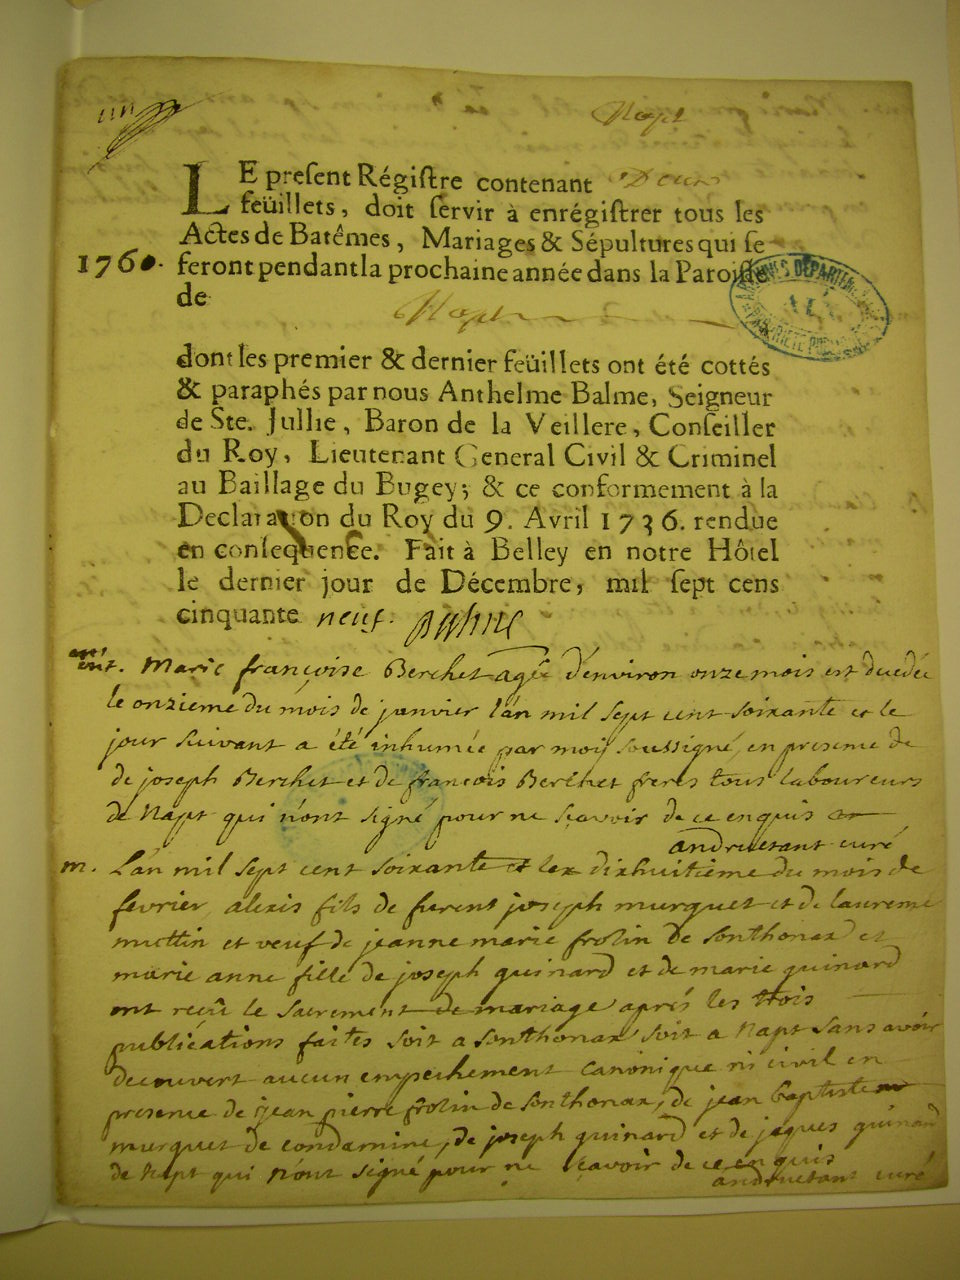 Napt
LE preſent Régiſtre contenant Douze
feüillets, doit ſervir à enrégiſtrer tous les
Actes de Batêmes, Mariages & Sépultures qui ſe
1760. feront pendant la prochaine année dans la Paroiſſe
de
Napt
dont les premier & dernier feüillets ont été cottés
& paraphés par nous Anthelme Balme, Seigneur
de Ste. Jullie, Baron de la Veillere, Conſeiller
du Roy, Lieutenant General Civil & Criminel
au Baillage du Bugey; & ce conformement à la
Declaration du Roy du 9. Avril 1736. rendue
en conſequence. Fait à Belley en notre Hôtel
le dernier jour de Décembre, mil ſept cens
cinquante neuf. Balme
ent. Marie françoise Berchet agée d'environ onze mois est decedée
le onzieme du mois de janvier l'an mil sept cent soixante et le
jour suivant a été inhumée par moy soussigné, en presence de
de joseph Berchet et de françois Berchet freres tous laboureurs
de Napt qui n'ont signé pour ne scavoir de ce enquis
andruetant curé
m. L'an mil sept cent soixante et le dixhuitieme du mois de
fevrier, alexis fils de furent joseph murguet et de laurence
mettin et veuf de jeanne marie frolin de sonthonax et
marie anne fille de joseph guinard et de marie guinard
ont reçu le sacrement de mariage aprés les trois
publications faites soit a sonthonax soit a Napt sans avoir
decouvert aucun empechement canonique ni civil en
presence de jean pierre frolin de sonthonax, de jean baptiste
murguet de condamine, de joseph guinard et de jaques guinard
de Napt qui n'ont signé pour ne scavoir de ce enquis
andruetant curé